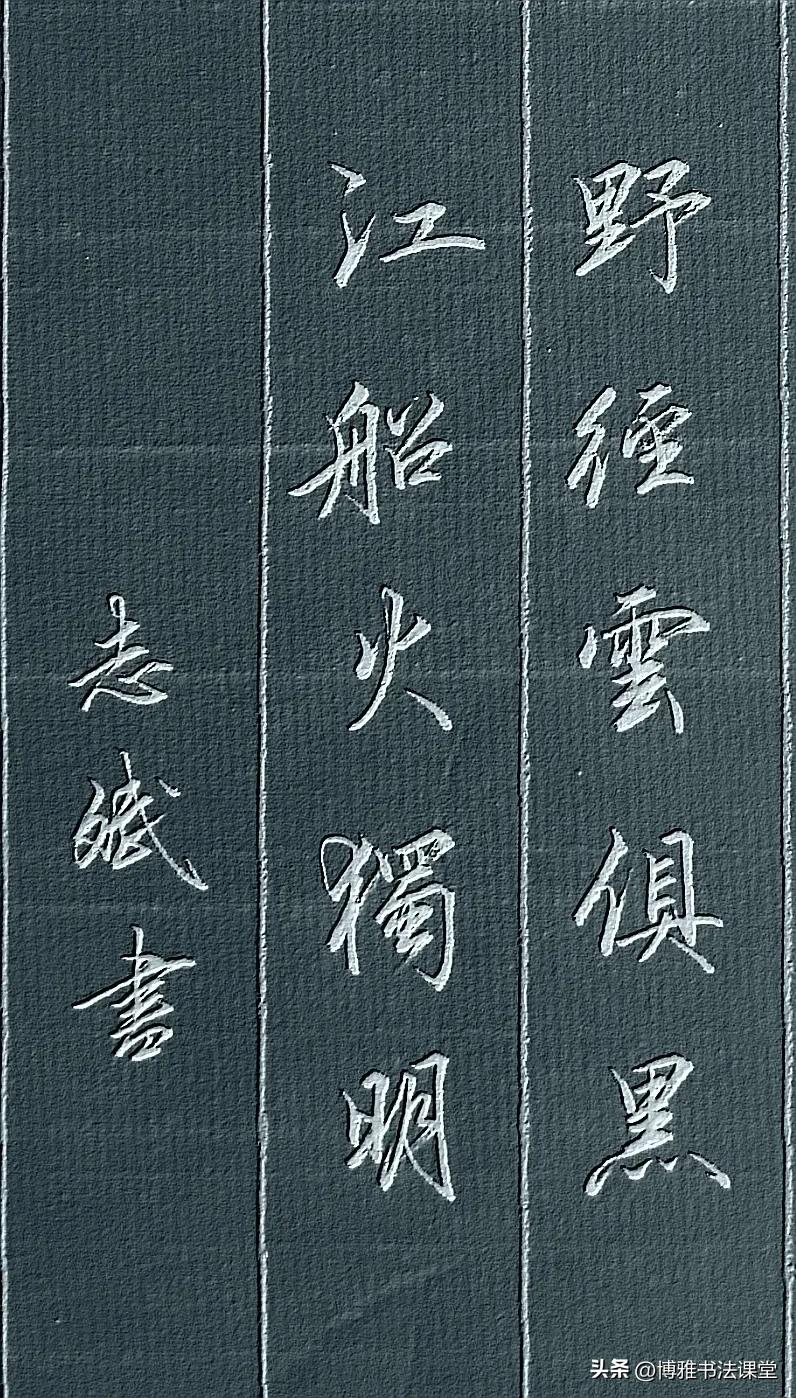 野徑雲俱黑
江船火獨明
志斌書
头条 @博雅书法课堂